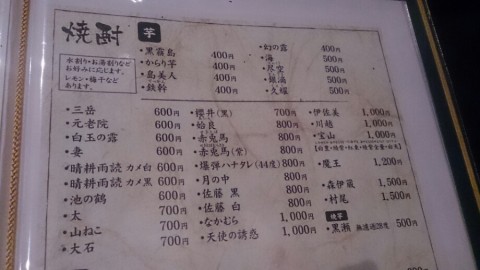 焼酎 芋
水割り・お湯割りなど
お好みに応じます。
レモン・梅干など
あります。
・黒霧島 400円
・からり芋 400円
・島美人 400円
・鉄幹 400円
・幻の露 400円
・海 500円
・尽空 500円
・銀滴 500円
・久耀 500円
・三岳 600円
・元老院 600円
・白玉の露 600円
・妻 600円
・晴耕雨読 カメ白 600円
・晴耕雨読 カメ黒 600円
・池の鶴 600円
・太 700円
・山ねこ 700円
・大石 700円
・櫻井(黒) 700円
・始良 800円
・赤兎馬 800円
・赤兎馬(紫) 800円
・爆弾ハナタレ(44度) 800円
・月の中 800円
・佐藤 黒 800円
・佐藤 白 800円
・なかむら 1,000円
・天使の誘惑 1,000円
・伊佐美 1,000円
・川越 1,000円
・宝山 1,000円
・魔王 1,200円
・森伊蔵 1,500円
・村尾 1,500円
焼芋
・黒瀬 無濾過28度 500円